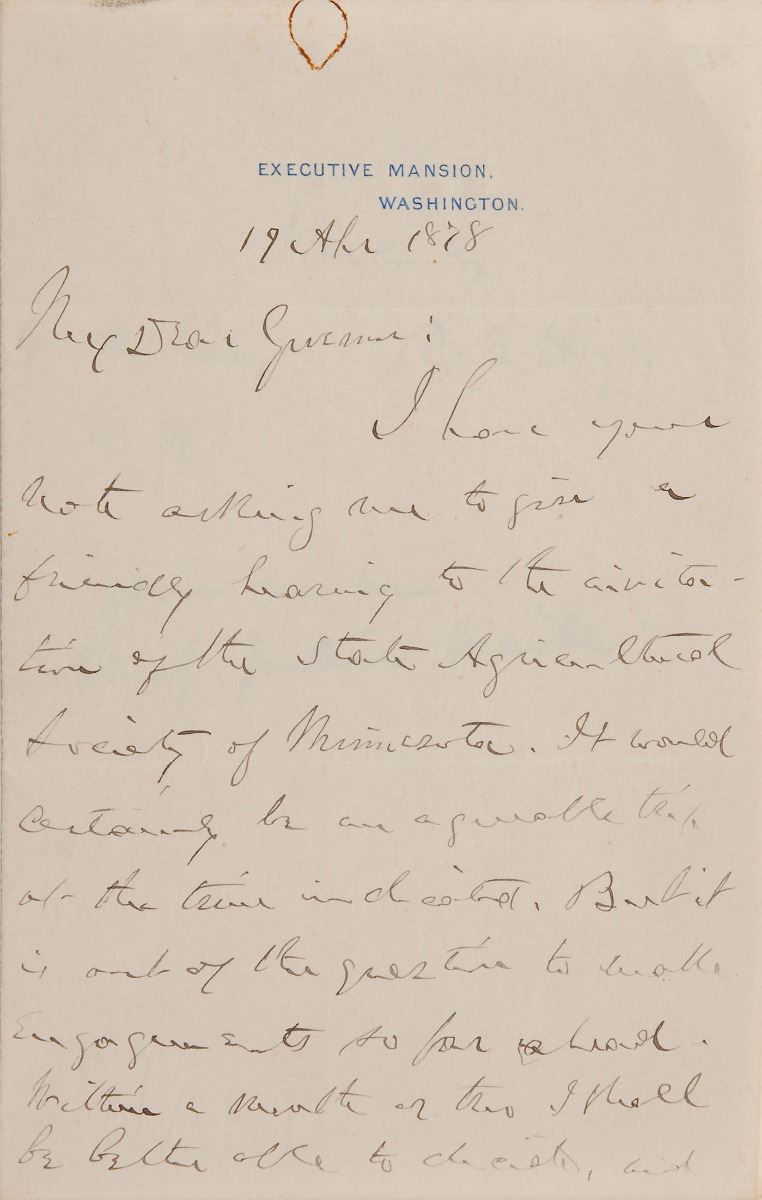 EXECUTIVE MANSION,
WASHINGTON.
19 Apr 1878
My Dear Governor:
I have your
note asking me to give a
friendly hearing to the invita-
tion of the State Agricultural
Society of Minnesota. It would
certainly be an agreeable trip
at the time indicated. But it
is out of the question to make
engagements so far ahead.
Within a month or two I shall
be better able to decide, and